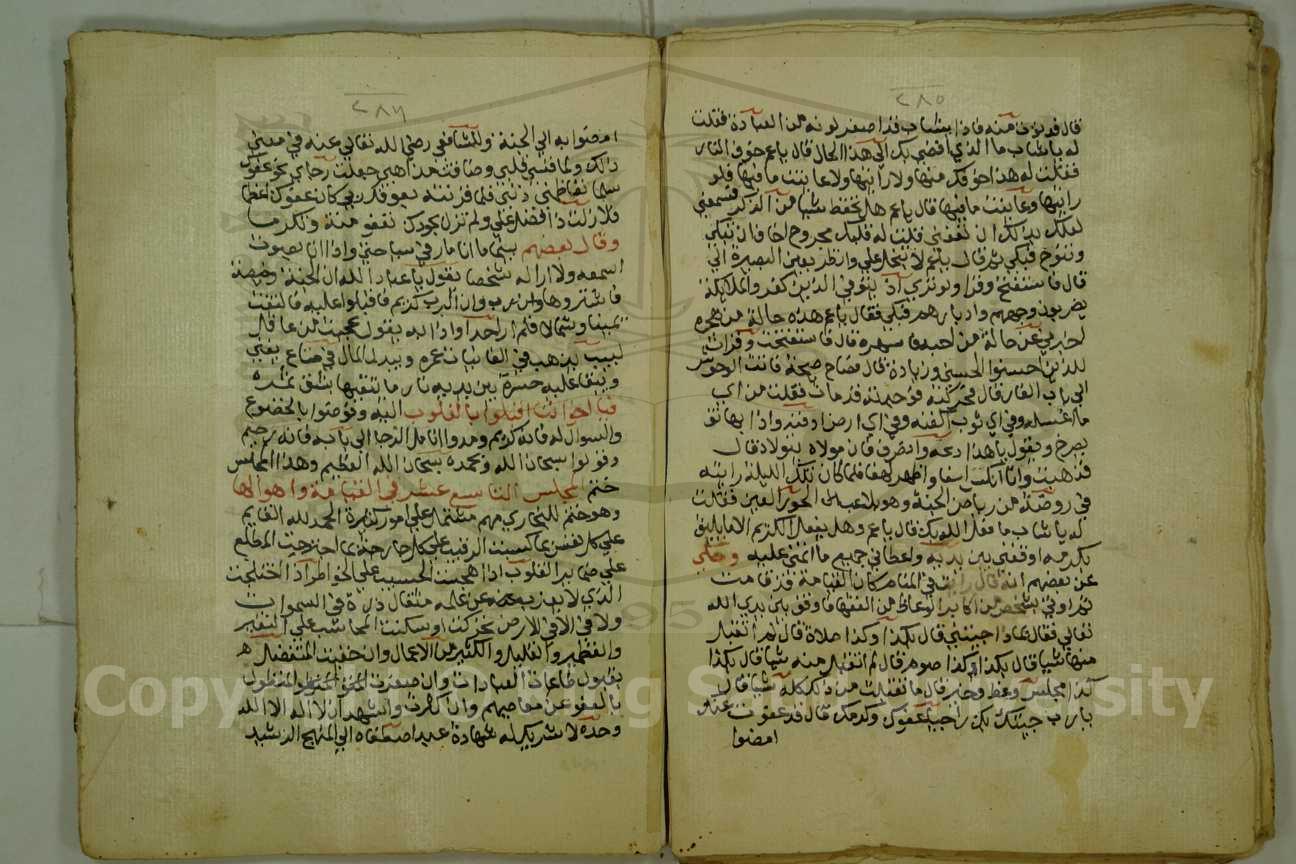 ٢٨٥
قال فدنوت منه فاذا بشاب قد اصفر لونه من العبادة فقلت
له يا شاب ما الذي افضي بك الي هذا الحال قال يا عم خوف النار
فقلت له هذا خوفك منها ولا رايتها ولا عاينت ما فيها فلو
رايتها وعاينت ما فيها قال يا عم هل تحفظ شيا من الذكر فتسمعني
لعلك بذلك ان تنفعني قلت له قلبك مجروح اخاف ان تبكي
وتنوح فبكي ثم قال يا عم لا تبخل علي وانظر بعين البصيرة الي
قال فاستفتح وقرا ولو تري اذ يتوفي الذين كفروا الملائكة
يضربون وجوههم وادبارهم فبكي فقال يا عم هذه حالة من هجره
اخبرني عن حالة من احبه سهره قال فاستفتحت وقرات
للذين احسنوا الحسني وزيادة قال فصاح صيحة فاتت الوحوش
الي باب الغار قال فحركته فوجدته قد مات فقلت من اي
ما اغسله وفي اي ثوب اكفنه وفي اي ارض ادفنه واذا بهاتف
يصرخ ويقول يا هذا دعه وانصرف فان مولاه يتولاه قال
فذهبت وانا ابكي اسفا واظهر لهفا فلما كان تلك الليلة رايته
في روضة من رياض الجنة وهو يلاعب الحور العين فقلت
له يا شاب ما فعل الله بك قال يا عم وهل يفعل الكريم الا ما يليق
بكرمه اوقفني بين يديه واعطاني جميع ما اتمني عليه وحكي
عن بعضهم انه قال رايت في المنام كان القيامة قد قامت
ثم اوتي بشخص من اكابر الوعاظ من الفقهاء وقف بين يدي الله
تعالي فقال بماذا جيتني قال بكذا وكذا صلاة قال لم اتقبل
منها شيا قال بكذا وكذا صوم قال لم اتقبل منه شيا قال بكذا
كذا مجلس وعظ وخير قال ما تقبلت من ذلك كله شيا قال
يا رب جيتك بك راجيا عفوك وكرمك قال قد عفوت عنك
امضوا
٢٨٦
امضوا به الي الجنة وللشافعي رضي الله تعالي عنه في معني
ذلك ولما قسي قلبي وضاقت مذاهبي جعلت رجاي نحو عفوك
سلما تعاظمني ذنبي فلما قرنته بعفوك ربي كان عفوك اعظما
فلا زلت ذا فضل علي ولم تزل تجودك تعفو منة وتكرما
وقال بعضهم بينما انا مار في سياحتي واذا انا بصوت
اسمعه ولا اراله شخصا يقول يا عباد الله ان الجنة رخيصة
فاشتروها وان الرب كريم فاقبلوا عليه فالتفت
يمينا وشمالا فلم ار احدا واذا به يقول عجبت لمن عاقل
لبيب يذهب في الغانيات عمره ويبدل المال في متاع يفني
ويبقا عليه حسرة بين يديه نار ما لتقيها بشق تمره
فيا اخواننا اقبلوا بالقلوب اليه وقوموا بالخضوع
والسوال له فانه كريم ومدوا انامل الرجا الي بابه فانه رحيم
وقولوا سبحان الله وبحمده سبحان الله العظيم وهذا المجلس
ختم المجلس التاسع عشر في القيامة واهوالها
وهو ختم للبخاري مهم مشتمل علي امور كثيرة الحمد لله القايم
علي كل نفس بما كسبت الرقيب علي كل جارحة بما اجترحت المطلع
علي ضماير القلوب اذا هجست الحسيب علي الخواطر اذا اختلجت
الذي لا يعزب عن علمه مثقال ذرة في السموات
ولا في الا في لارض تحركت او سكنت المحاسب علي النقير
والقطمير والقليل والكثير من الاعمال وان خفيت المتفضل
بقبول طاعات العبادات وان صغرت المتطول
بالعفو عن معاصيهم وان كثرت واشهد ان لا اله الا الله
وحده لا شريك له شهادة عبد اصطفاه الي المنهج الرشيد
Copyright © King Saud University